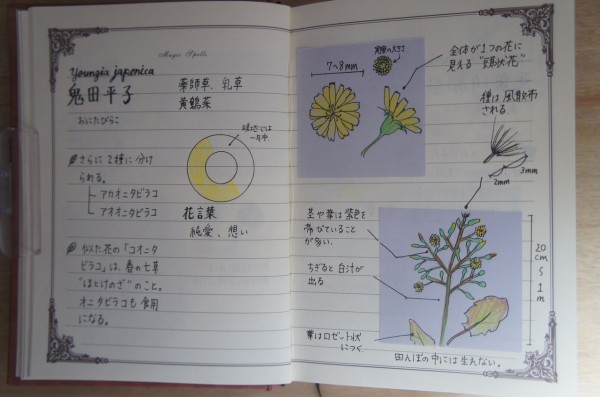 Magic Spells
Youngia japonica
鬼田平子
おにたびらこ
薬師草、乳草
黄鶴菜
暖かい所では
一年中
さらに2種に分け
られる。
アカオニタビラコ
アオオニタビラコ
花言葉
純愛、想い
似た花の「コオニタ
ビラコ」は、春の七草
"ほとけのざ"のこと。
オニタビラコも食用
になる。
7~8mm
実際の大きさ
全体が1つの花に
見える"頭状花"
種は風散布
される。
2mm
3mm
茎や葉は紫色を
帯びていること
が多い。
ちぎると白汁が
出る
葉はロゼット状
につく
20cm
S
1m
田んぼの中には生えない。